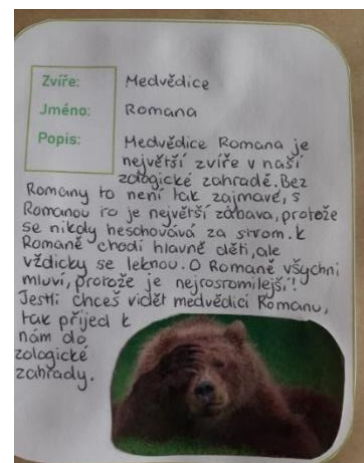 Zvíře: Medvědice
Jméno: Romana
Popis: Medvědice Romana je
největší zvíře v naší
zologické zahradě. Bez
Romany to není tak zajmavé, s
Romanou to je největší zábava, protože
se nikdy neschovává za strom. k
Romaně chodí hlavně děti, ale
vždicky se leknou. O Romaně všychni
mluví, protože je nejrosromilejší!
Jestli chceš vidět medvědici Romanu,
tak přijed k
nám do
zologické
zahrady.